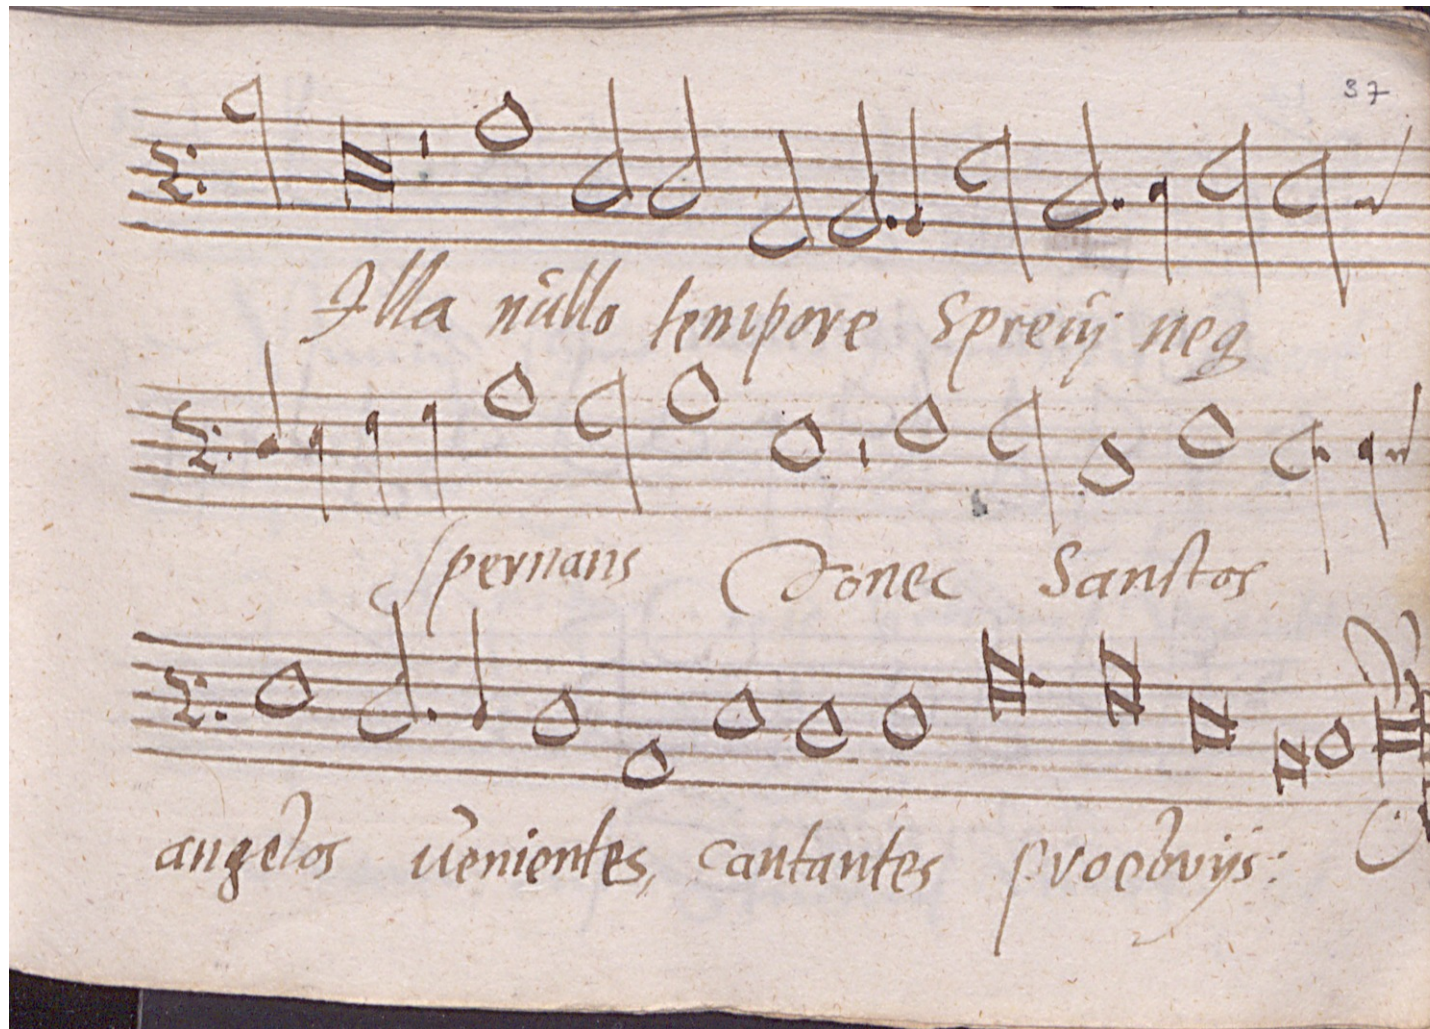 37
Illa nullo tempore Sprevij neq
Spernans Donec Sanctos
angelos venientes, cantantes proebrijs: